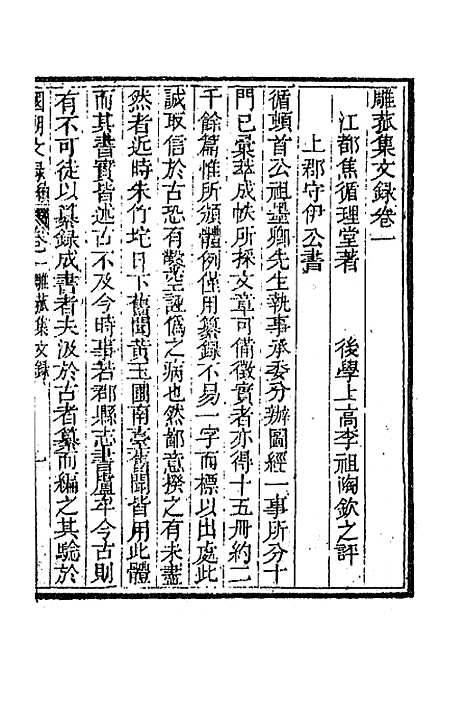 雕菰集文録卷一
江都焦循理堂著　後學上高李祖陶欽之評
上郡守伊公書
循頓首公祖墨卿先生執事承委分辦圖經一事所分十
門已彙萃成帙所採文章可備徵實者亦得十五冊約二
千餘篇惟所頒體例僅用纂録不易一字而標以出處此
誠取信於古恐有鑿空誣僞之病也然鄙意撰之有未盡
然者近時朱竹垞日下舊聞黃玉圃南臺舊聞皆用此體
而其書實皆述古不及今時事若郡縣志書虛半今古則
有不可徒以纂録成書者夫汲於古者纂而編之其驗於
國朝文録 卷一 雕菰集文録 一